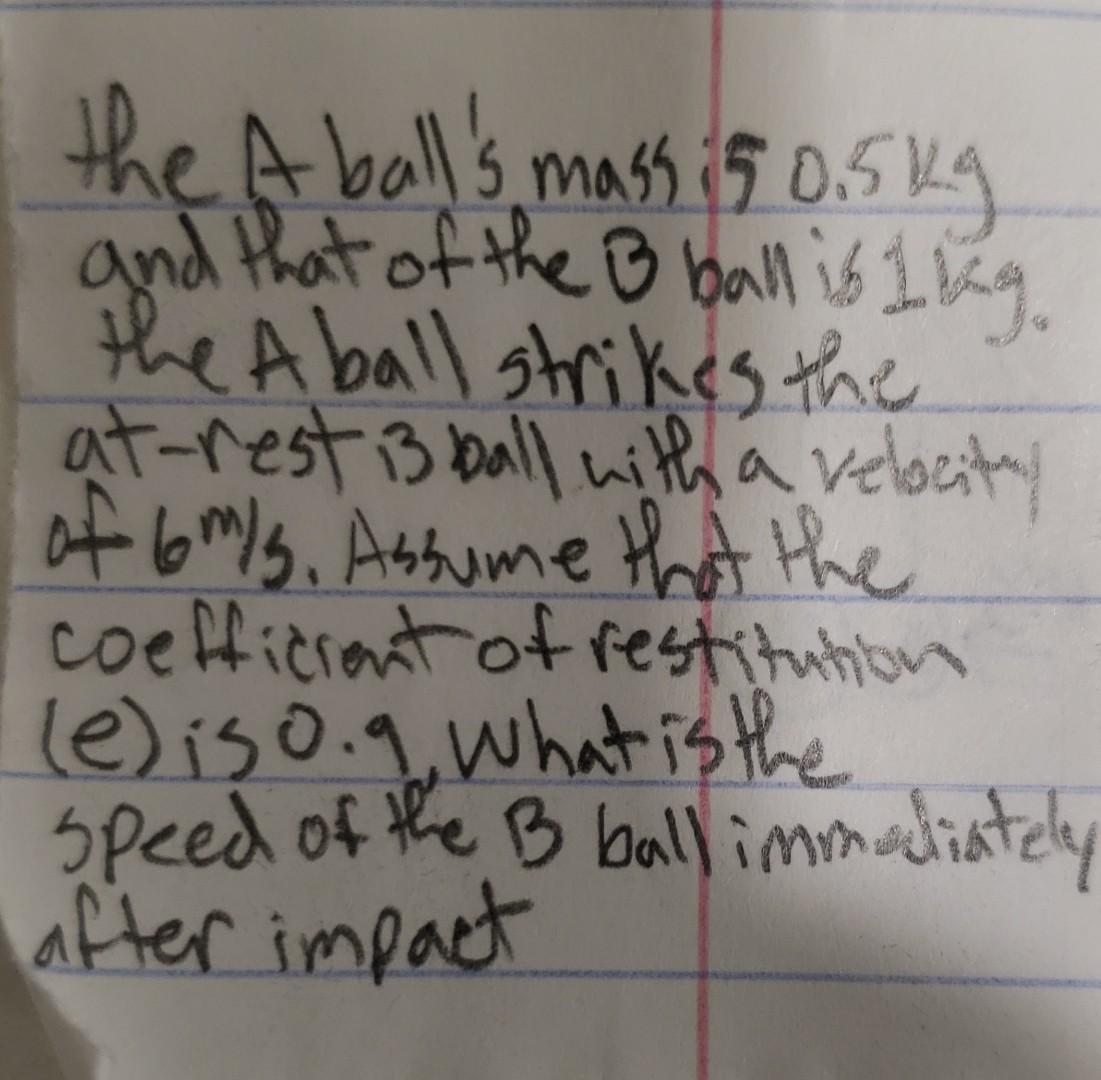 the A ball's mass is 0.5 kg
and that of the B ball is 1 kg.
the A ball strikes the
at-rest B ball with a velocity
of 6 m/s. Assume that the
coefficient of restitution
(e) is 0.9, What is the
speed of the B ball immediately
after impact